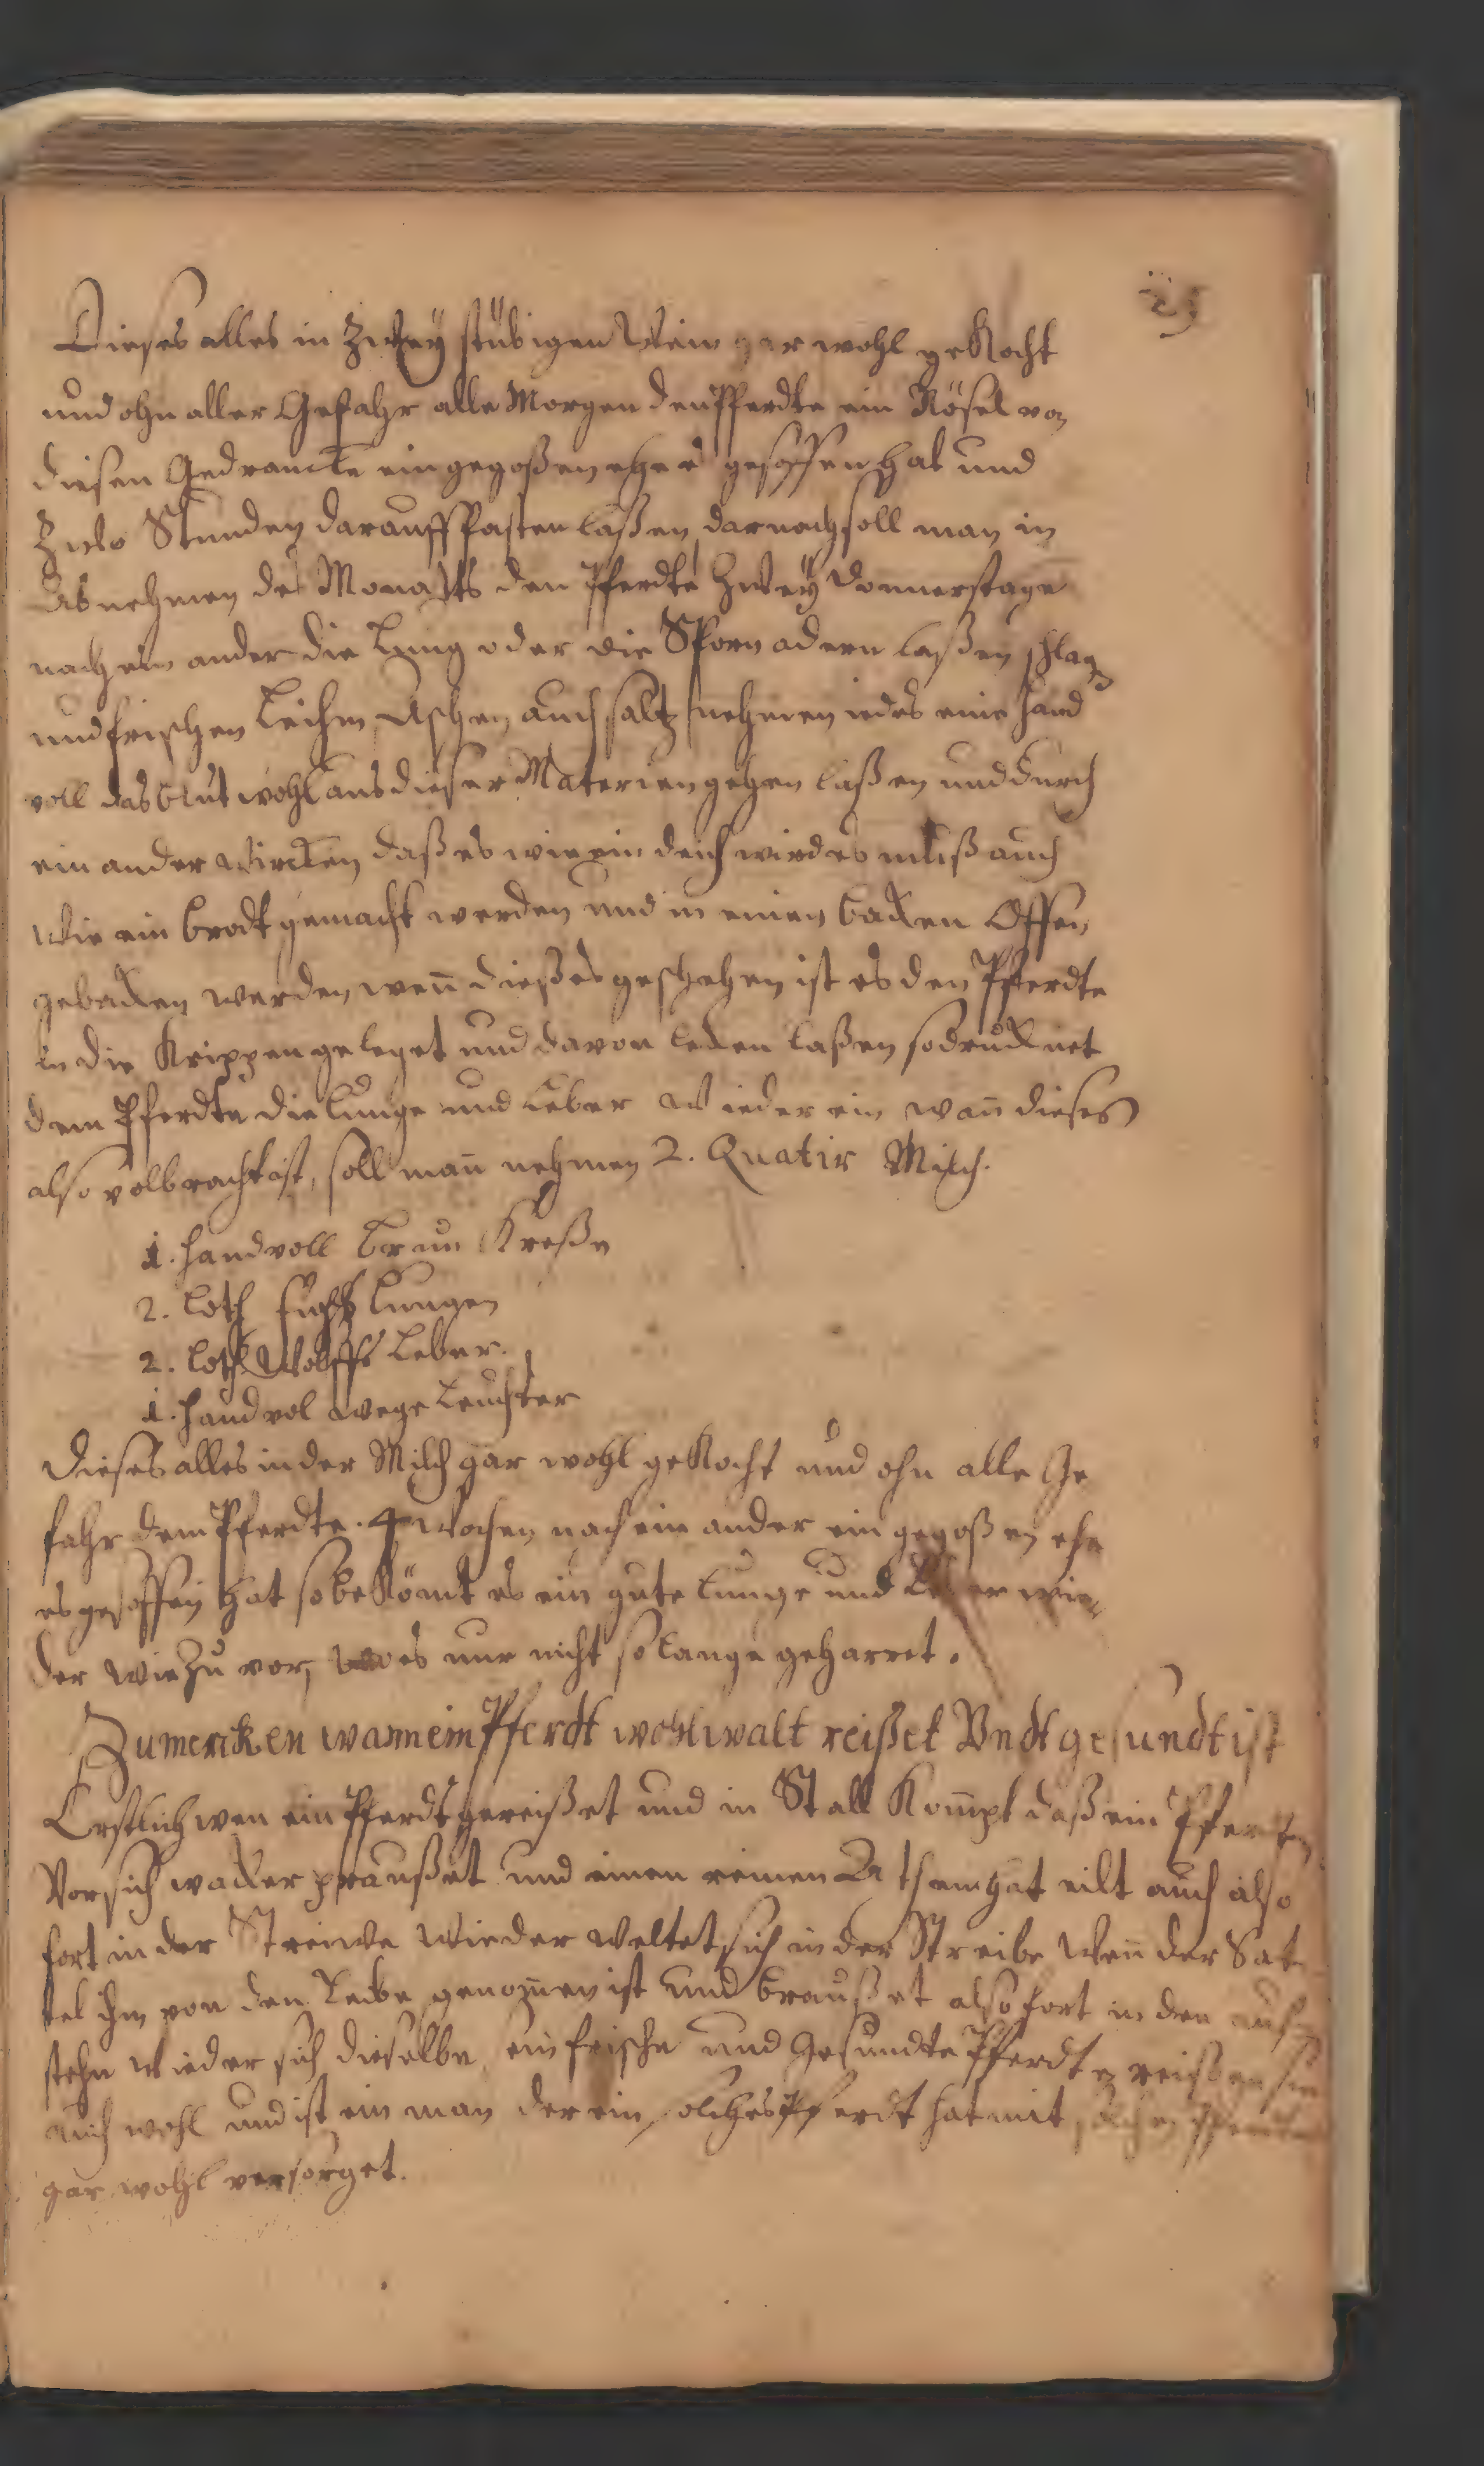 25
Dieses alles in Zweÿ stübigen Wein gar wohl gekocht
und ohn aller Gefahr alle Morgen den Pferdte ein Nösel von
diesen Gedrancke ein gegoßen ehe es gesoffen hat und
Zwo Stunden darauff fasten laßen, darnach soll man in
Abnehmen des Monatts den Pferdte Zweÿ Donnerstage
nach ein ander die Lung oder die Sporn adern laßen schlagen
und frischen Leihm, Aschen auch saltz nehmen iedes eine hand
voll das blut wohl aus dieser Materien gehen laßen und durch
ein ander wircken daß es wie ein deich wird es muß auch
Wie ein brodt gemacht werden und in einen backen Offen
gebacken werden, wen̄ dießes geschehen ist es den Pferdte
in die Krippen geleget und davon lecken laßen so drucknet
dem Pferdte die Lunge und Leber wieder ein wan̄ dieses
also volbracht ist, soll man̄ nehmen 2. Quatir Milch.
1. handvoll brun Kreße
2. Loth fuchs Lungen
2. Loth Wolffs Leber.
1. handvol wege Leuchter
Dieses alles in der Milch gar wohl gekocht und ohn alle Ge
fahr dem Pferdte. 4 Wochen nach ein ander ein gegoßen ehe
es gesoffen hat so bekömt es ein gute Lunge und Leber wie
der wie zu vor, wo es nur nicht so lange geharret.
Zumercken wann ein Pferdt wohl walt reißet Vndt gesundt ist
Erstlich wen ein Pferdt gereißet und in Stall Kom̄pt daß ein Pferdt
Vor sich wacker praußet und einen reinen Athem hat eilt auch also
fort in der Streuwe wieder weltet sich in der Streibe Wen̄ der Sat
tel ihm von den Leibe genom̄en ist und braußet also fort in den auf
stehn wieder sich dieselbe ein frische und Gesundte Pferdt reißen
auch wohl und ist ein man der ein solches Pferdt hat mit solchen Pferdte
gar wohl versorget.